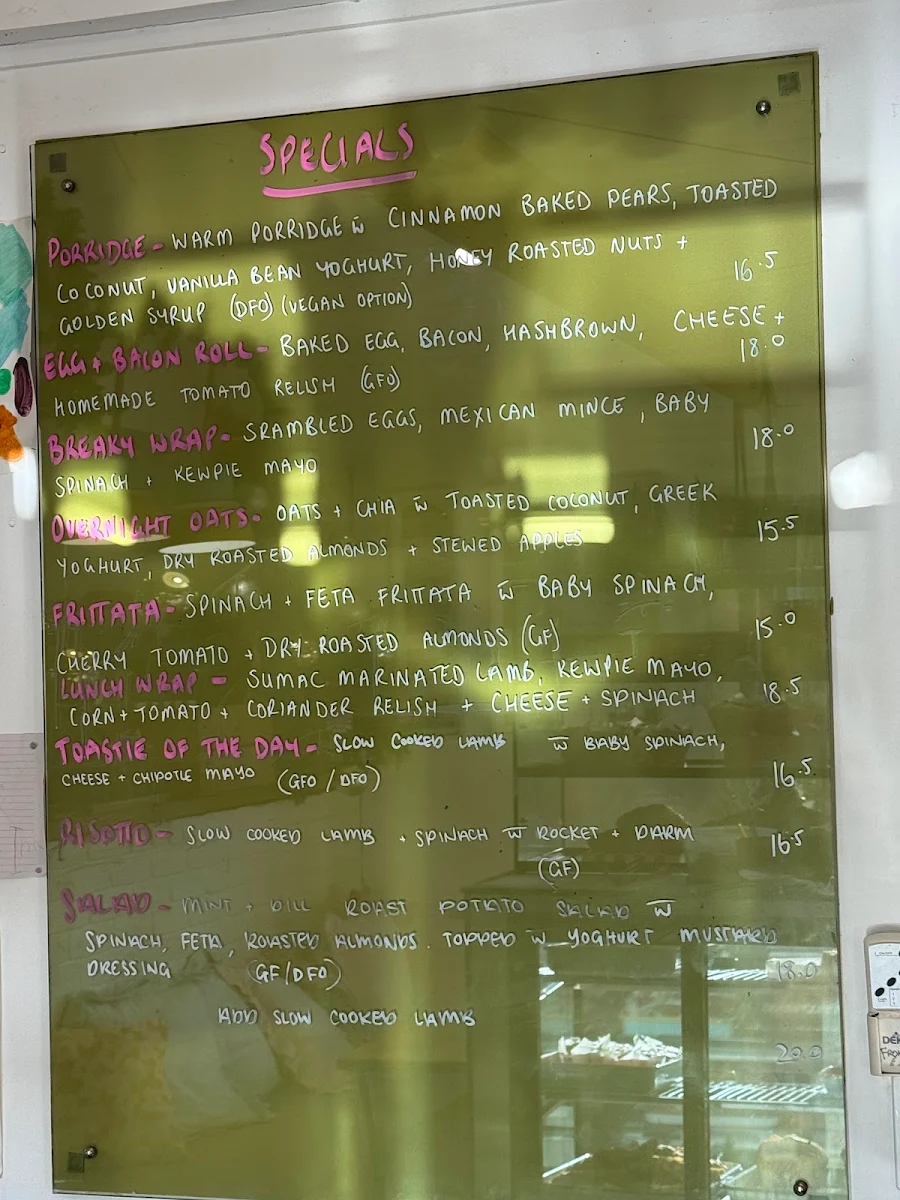 SPECIALS
PORRIDGE - WARM PORRIDGE w̅ CINNAMON BAKED PEARS, TOASTED
COCONUT, VANILLA BEAN YOGHURT, HONEY ROASTED NUTS +
GOLDEN SYRUP (DFO) (VEGAN OPTION) 16.5
EGG + BACON ROLL - BAKED EGG, BACON, HASHBROWN, CHEESE +
HOMEMADE TOMATO RELISH (GFO) 18.0
BREAKY WRAP - SRAMBLED EGGS, MEXICAN MINCE, BABY
SPINACH + KEWPIE MAYO 18.0
OVERNIGHT OATS - OATS + CHIA w̅ TOASTED COCONUT, GREEK
YOGHURT, DRY ROASTED ALMONDS + STEWED APPLES 15.5
FRITTATA - SPINACH + FETA FRITTATA w̅ BABY SPINACH,
CHERRY TOMATO + DRY ROASTED ALMONDS (GF) 15.0
LUNCH WRAP - SUMAC MARINATED LAMB, KEWPIE MAYO,
CORN + TOMATO + CORIANDER RELISH + CHEESE + SPINACH 18.5
TOASTIE OF THE DAY - SLOW COOKED LAMB w̅ BABY SPINACH,
CHEESE + CHIPOTLE MAYO (GFO / DFO) 16.5
RISOTTO - SLOW COOKED LAMB + SPINACH w̅ ROCKET + PARM 16.5
(GF)
SALAD - MINT + DILL ROAST POTATO SALAD w̅
SPINACH, FETA, ROASTED ALMONDS. TOPPED w̅ YOGHURT MUSTARD
DRESSING (GF/DFO) 18.0
ADD SLOW COOKED LAMB
20.0